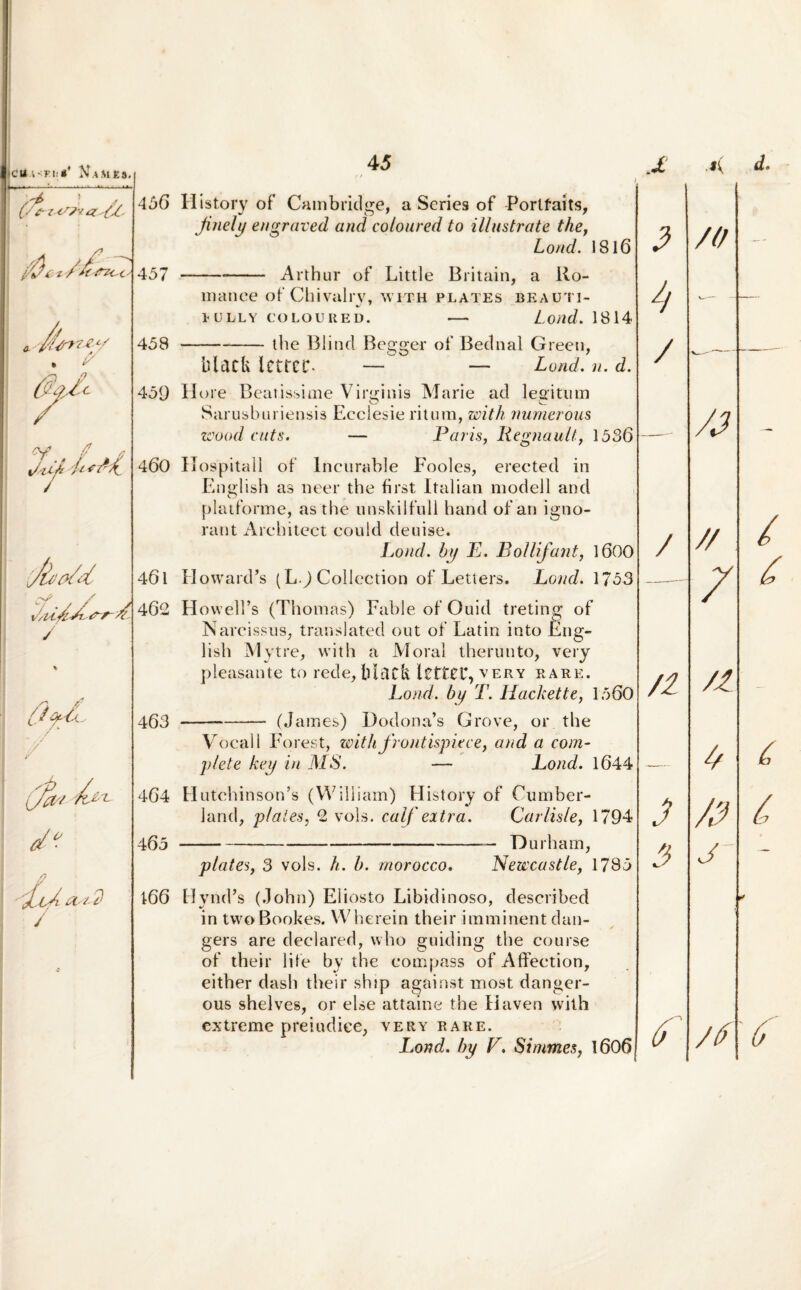 45
CHASERS' NAMES.
£ s. d.
456 History of Cambridge, a Series of Portfaits,
finely engraved and coloured to illustrate the,
Lond. 1816
3 10
457 ——— Arthur of Little Britain, a Ro-
mance of Chivalry, WITH PLATES BEAUTI-
FULLY COLOURED. — Lond. 1814
4
458 ——— the Blind Begger of Bednal Green,
black letter. — — Lond. n. d.
1
459 Hore Beatissime Virginis Marie ad legitum
Sarusburiensis Ecclesie ritum, with numerous
wood cuts. — Paris, Regnault, 1536
13
460 Hospitall of Incurable Fooles, erected in
English as neer the first Italian modell and
platforme, as the unskilfull hand of an igno-
rant Architect could deuise.
Lond. by E. Bollifant, 1600
1 11 6
461 Howard's (L.) Collection of Letters. Lond. 1753
7 6
462 Howell's (Thomas) Fable of Ouid treting of
Narcissus, translated out of Latin into Eng-
lish Mytre, with a Moral therunto, very
pleasante to rede, black letter, VERY RARE.
Lond. by T. Hackette, 1560
12 12
463 ——— (James) Dodona's Grove, or the
Vocall Forest, with frontispiece, and a com-
plete key in MS. — Lond. 1644
4 6
464 Hutchinson's (William) History of Cumber-
land, plates, 2 vols. calf extra. Carlisle, 1794
3 13 6
do
465 ——— ——— Durham,
plates, 3 vols. h. b. morocco. Newcastle, 1785
3 5
166 Hynd's (John) Eliosto Libidinoso, described
in two Bookes. Wherein their imminent dan-
gers are declared, who guiding the course
of their life by the compass of Affection,
either dash their ship against most danger-
ous shelves, or else attaine the Haven with
extreme preiudice, VERY RARE.
Lond. by V. Simmes, 1606
6 16 6